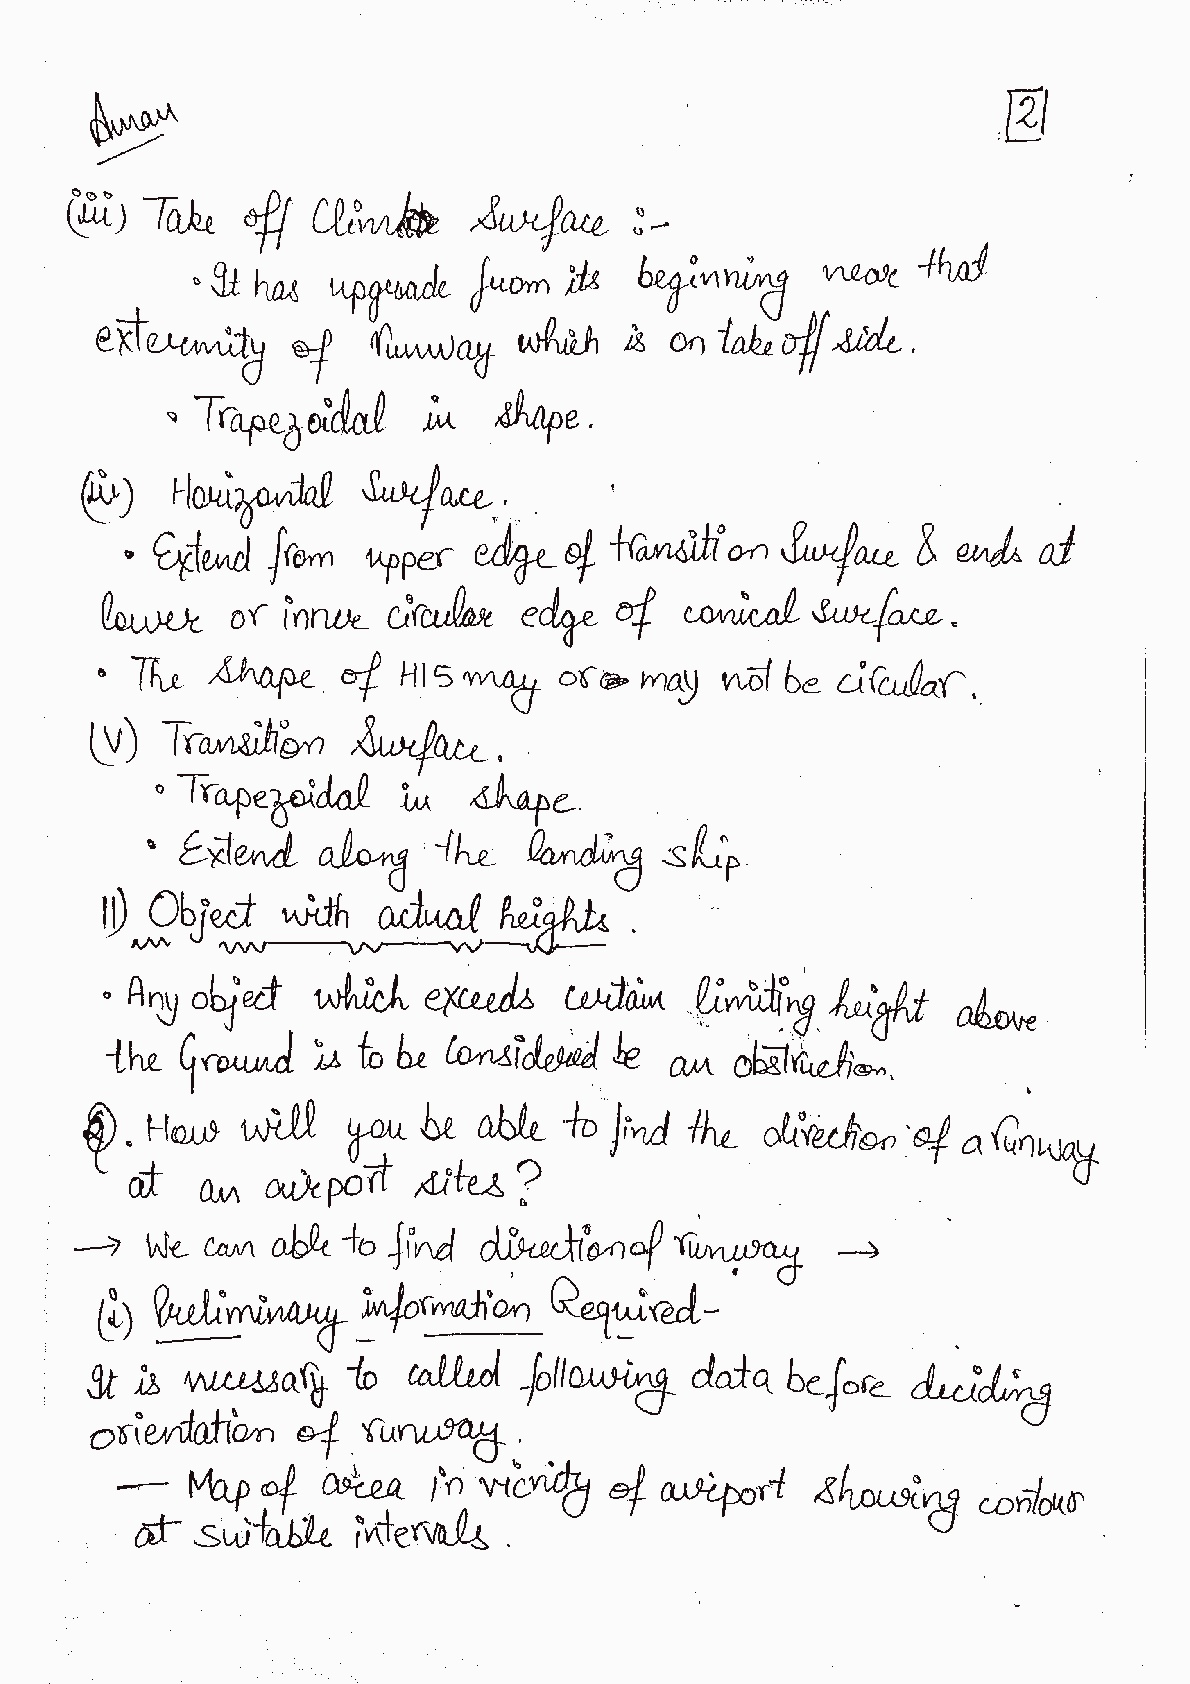 Aman
2
(iii) Take off Climb Surface :-
• It has upgrade from its beginning near that
extermity of runway which is on take off side.
• Trapezoidal in shape.
(iv) Horizontal Surface.
• Extend from upper edge of transition Surface & ends at
lower or inner circular edge of conical surface.
• The shape of HIS may or may not be circular.
(V) Transition Surface.
• Trapezoidal in shape.
• Extend along the landing ship.
II) Object with actual heights.
• Any object which exceeds certain limiting height above
the Ground is to be Considered be an obstruction.
Q. How will you be able to find the direction of a runway
at an airport sites?
→ We can able to find direction of runway →
(i) Preliminary information Required-
It is necessary to called following data before deciding
orientation of runway.
— Map of area in vicnity of airport showing contour
at suitable intervals.